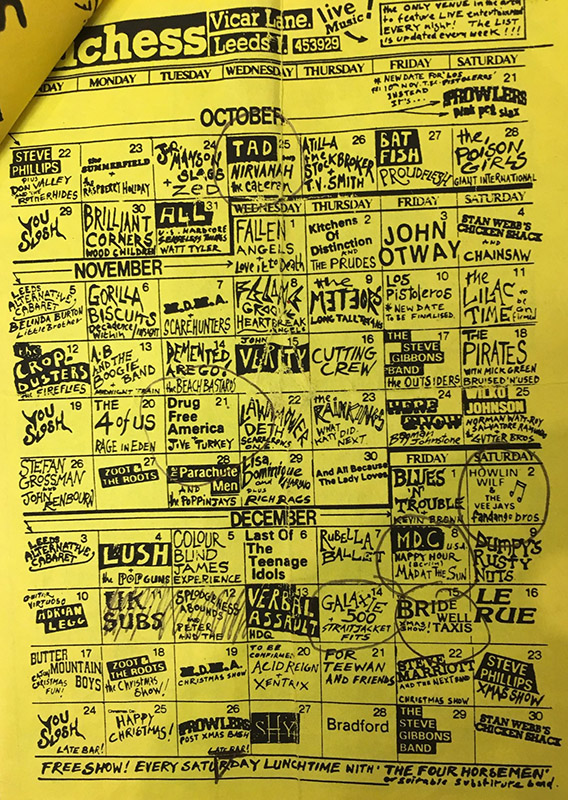 chess
Vicar Lane.
Leeds 1. 453929
live
Music!
the ONLY VENUE in the area
to feature LIVE entertainment
EVERY night! The LIST
is updated every week!!!
MONDAY TUESDAY WEDNESDAY THURSDAY FRIDAY SATURDAY
* NEW DATE FOR 'LOS
PISTOLEROS'
FRI 10th NOV.
INSTEAD
IT'S...
21
PROWLERS
OCTOBER
22
STEVE
PHILLIPS
PLUS
DON VALLEY
AND THE
ROTHERHIDES
23
the
SUMMERFIELD
+
the
RASPBERRY HOLIDAY
24
SLUGS
+
ZED
25
TAD
NIRVANAH
the Cateran
26
ATILLA
the
STOCKBROKER
+
T.V. SMITH
27
BAT
FISH
PROUDFLESH
28
the
POISON
GIRLS
GIANT INTERNATIONAL
29
YOU
SLOSH
30
BRILLIANT
CORNERS
WOOD CHILDREN
31
ALL
U.S. HARDCORE
WATT TYLER
WEDNESDAY THURSDAY FRIDAY SATURDAY
1
FALLEN
ANGELS
+
Love it to Death
2
Kitchens
Of
Distinction
and
THE PRUDES
3
JOHN
OTWAY
4
STAN WEBB'S
CHICKEN SHACK
AND
CHAINSAW
NOVEMBER
5
LEEDS
ALTERNATIVE
CABARET
BELINDA BURTON
Little Brother
6
GORILLA
BISCUITS
Decadence
Within
7
M.D.M.A.
+
SCAREHUNTERS
8
HEARTBREAK
ANGELS
9
the
METEORS
LONG TALL TEXANS
10
LOS
Pistoleros
* NEW DATE
TO BE FINALISED.
11
the
LILAC
TIME
12
the
CROP-
DUSTERS
the FIREFLIES
13
A.B
AND THE
BOOGIE
BAND
+
MIDNIGHT TRAIN
14
DEMENTED
ARE GO!
the BEACH BASTARDS
15
JOHN
VERITY
16
CUTTING
CREW
17
THE
STEVE
GIBBONS
BAND
the OUTSIDERS
18
THE
PIRATES
WITH MICK GREEN
BRUISED'N'USED
19
YOU
SLOSH
20
THE
4 OF US
RAGE IN EDEN
21
Drug
Free
America
+
JIVE TURKEY
22
LAWNMOWER
DETH
23
the
RAINKINGS
WHAT
KATY DID
NEXT.
24
HERE
& NOW
25
WILKO
JOHNSON
NORMAN WATT-ROY
SALVATORE RAMUNDO
GUTTER BROS.
26
STEFAN
GROSSMAN
AND
JOHN RENBOURN
27
ZOOT &
THE ROOTS
28
The
Parachute
Men
AND
the POPPINJAYS
29
Lisa
Dominique
PLUS
RICH RAGS
30
And All Because
The Lady Loves
FRIDAY SATURDAY
1
BLUES
'N'
TROUBLE
+
KEVIN BROWN
2
HOWLIN
WILF
& THE
VEE JAYS
fandango bros.
DECEMBER
3
LEEDS
ALTERNATIVE
CABARET
4
LUSH
+
the POP GUNS
5
COLOUR
BLIND
JAMES
EXPERIENCE
6
Last Of
The
Teenage
Idols
7
RUBELLA
BALLET
8
MDC U.S.A.
HAPPY HOUR
(BERLIN)
MAD AT THE SUN
9
DUMPY'S
RUSTY
NUTS
10
GUITAR
VIRTUOSO
ADRIAN
LEGG
11
UK
SUBS
12
SPLODGENESS
ABOUNDS
+
PETER
AND THE
13
VERBAL
ASSAULT
HDQ
14
GALAXIE
500
STRAITJACKET
FITS
15
BRIDE WELL
XMAS SHOW! TAXIS
16
LE
RUE
17
BUTTER
MOUNTAIN
BOYS
CHRISTMAS
FUN!
18
ZOOT &
THE ROOTS
the Christmas
Show!
19
M.D.M.A.
CHRISTMAS SHOW
20
TO BE
CONFIRMED
ACID REIGN
+
XENTRIX
21
FOR
TEEWAN
AND FRIENDS
22
STEVE
MARRIOTT
AND THE NEXT BAND
CHRISTMAS SHOW
23
STEVE
PHILLIPS
XMAS SHOW
24
YOU
SLOSH
LATE BAR!
25
Christmas Day
HAPPY
CHRISTMAS!
26
PROWLERS
POST XMAS BASH
LATE BAR!
27
SHY
28
Bradford
29
THE
STEVE
GIBBONS
BAND
30
STAN WEBB'S
CHICKEN SHACK
FREE SHOW! EVERY SATURDAY LUNCHTIME WITH 'THE FOUR HORSEMEN'
or suitable substitute band.